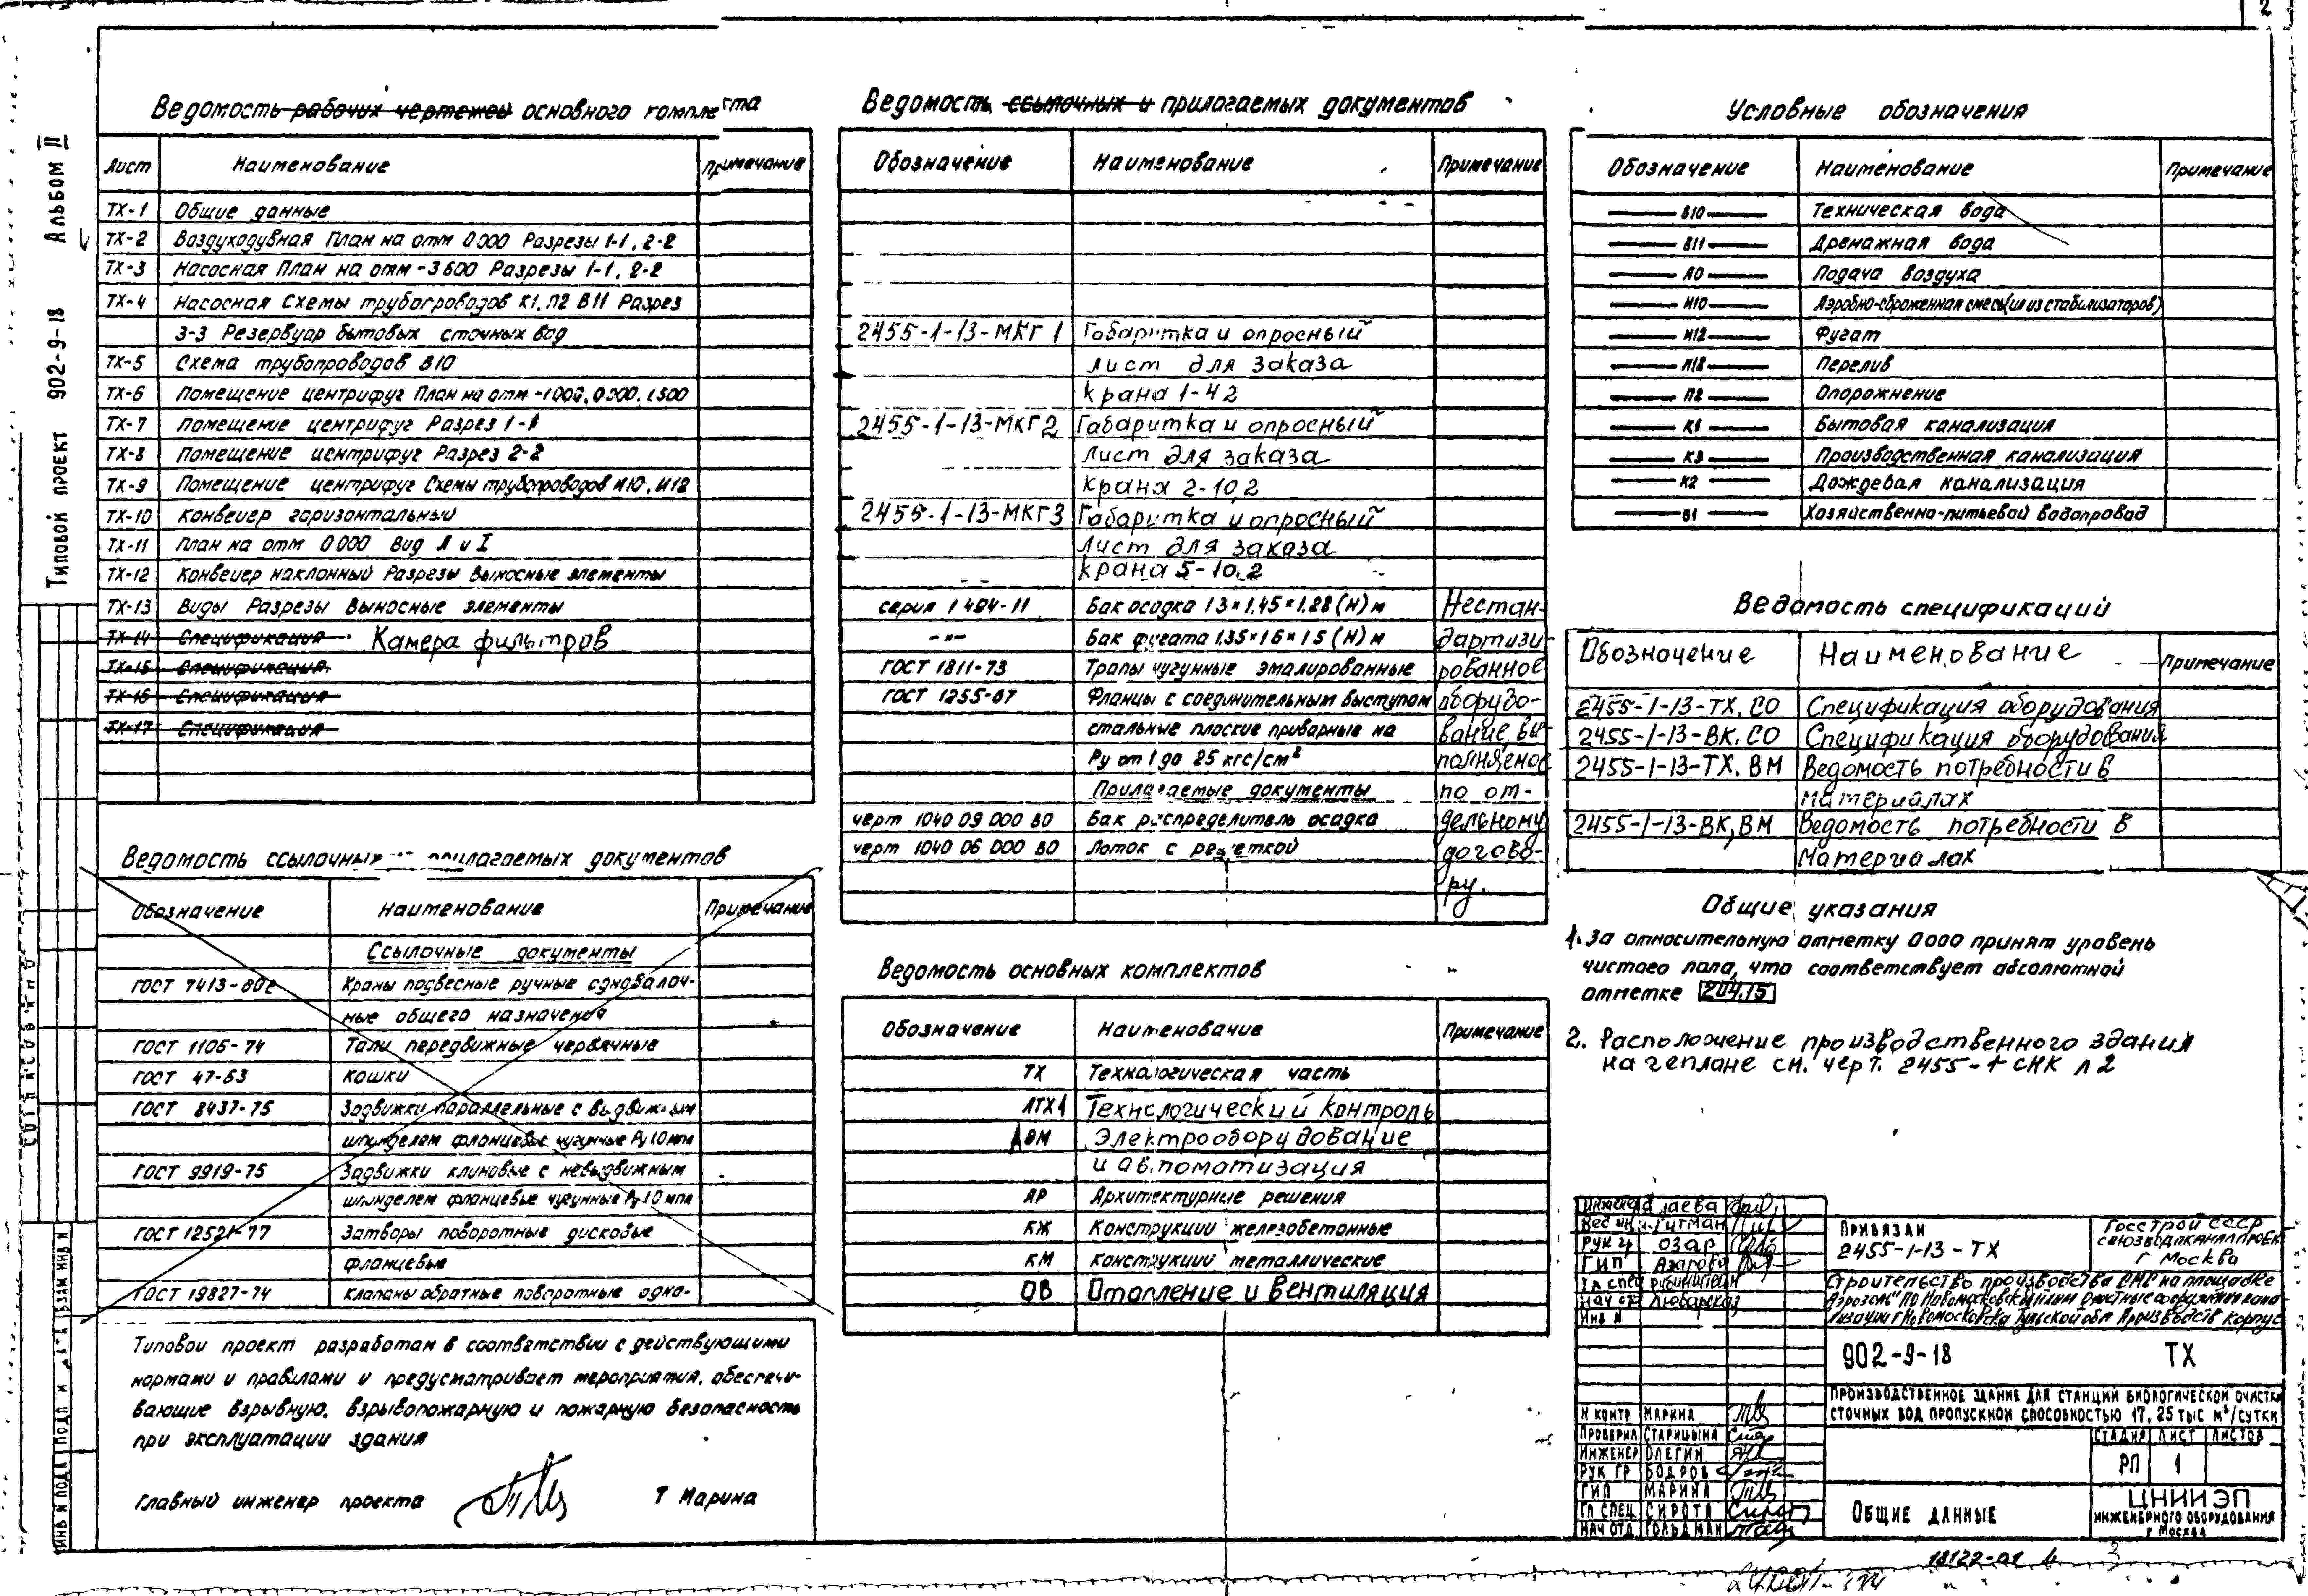 2
Типовой проект 902-9-18 Альбом II
Ведомость рабочих чертежей основного комплекта
Лист Наименование Примечание
ТХ-1 Общие данные
ТХ-2 Воздуходувная План на отм 0000 Разрезы 1-1, 2-2
ТХ-3 Насосная План на отм -3600 Разрезы 1-1, 2-2
ТХ-4 Насосная Схемы трубопроводов К1, П2 В11 Разрез
3-3 Резервуар бытовых сточных вод
ТХ-5 Схема трубопроводов В10
ТХ-6 Помещение центрифуг План на отм -1000, 0000, 1500
ТХ-7 Помещение центрифуг Разрез 1-1
ТХ-8 Помещение центрифуг Разрез 2-2
ТХ-9 Помещение центрифуг Схемы трубопроводов И10, И12
ТХ-10 Конвейер горизонтальный
ТХ-11 План на отм 0000 Вид А и I
ТХ-12 Конвейер наклонный Разрезы Выносные элементы
ТХ-13 Виды Разрезы Выносные элементы
ТХ-14 Спецификация Камера фильтров
ТХ-15 Спецификация
ТХ-16 Спецификация
ТХ-17 Спецификация
Ведомость ссылочных прилагаемых документов
Обозначение Наименование Примечание
Ссылочные документы
ГОСТ 7413-80е Краны подвесные ручные однобалоч-
ные общего назначения
ГОСТ 1106-74 Тали передвижные червячные
ГОСТ 47-63 Кошки
ГОСТ 8437-75 Задвижки параллельные с выдвижным
шпинделем фланцевые чугунные Ру 10 мпа
ГОСТ 9919-75 Задвижки клиновые с невыдвижным
шпинделем фланцевые чугунные Ру 10 мпа
ГОСТ 12521-77 Затворы поворотные дисковые
фланцевые
ГОСТ 19827-74 Клапаны обратные поворотные одно-
Типовой проект разработан в соответствии с действующими
нормами и правилами и предусматривает мероприятия, обеспечи-
вающие взрывную, взрывопожарную и пожарную безопасность
при эксплуатации здания
Главный инженер проекта Т Марина
Ведомость ссылочных и прилагаемых документов
Обозначение Наименование Примечание
2455-1-13-МКГ 1 Габаритка и опросный
лист для заказа
крана 1-4 2
2455-1-13-МКГ2 Габаритка и опросный
лист для заказа
крана 2-10,2
2455-1-13-МКГ3 Габаритка и опросный
лист для заказа
крана 5-10.2
серия 1 494-11 Бак осадка 1 3×1,45×1,28 (н) м Нестан-
-"- Бак фугата 1,35×1 6×1 5 (н) м дартизи-
ГОСТ 1811-73 Трапы чугунные эмалированные рованное
ГОСТ 1255-67 Фланцы с соединительным выступом оборудо-
стальные плоские приварные на вание, вы-
Ру от 1 до 25 кгс/см² полняемое
Прилагаемые документы по от-
черт 1040 09 000 80 Бак распределитель осадка дельному
черт 1040 06 000 80 Лоток с решеткой догово-
ру.
Ведомость основных комплектов
Обозначение Наименование Примечание
ТХ Технологическая часть
АТХ1 Технологический контроль
ЭМ Электрооборудование
и автоматизация
АР Архитектурные решения
КЖ Конструкции железобетонные
КМ Конструкции металлические
ОВ Отопление и вентиляция
Условные обозначения
Обозначение Наименование Примечание
В10 Техническая вода
В11 Дренажная вода
А0 Подача воздуха
И10 Аэробно-сброженная смесь(ил из стабилизаторов)
И12 Фугат
И18 Перелив
П2 Опорожнение
К1 Бытовая канализация
К3 Производственная канализация
К2 Дождевая канализация
В1 Хозяйственно-питьевой водопровод
Ведомость спецификаций
Обозначение Наименование Примечание
2455-1-13-ТХ. СО Спецификация оборудования
2455-1-13-ВК. СО Спецификация оборудования
2455-1-13-ТХ. ВМ Ведомость потребности в
материалах
2455-1-13-ВК, ВМ Ведомость потребности в
материалах
Общие указания
1. За относительную отметку 0000 принят уровень
чистого пола, что соответствует абсолютной
отметке 204,15
2. Расположение производственного здания
на генплане см. черт. 2455-1 СНК л 2
Привязан
2455-1-13-ТХ
Госстрой СССР
Союзводоканалпроект
г Москва
902-9-18 ТХ
Производственное здание для станции биологической очистки
сточных вод пропускной способностью 17, 25 тыс м³/сутки
Н контр Марина
Проверил Старицына
Инженер Олегин
Рук гр Бодров
ГИП Марина
Гл спец Сирота
Нач отд Гольдман
Стадия Лист Листов
РП 1
Общие данные
ЦНИИЭП
инженерного оборудования
г Москва
18122-01 3